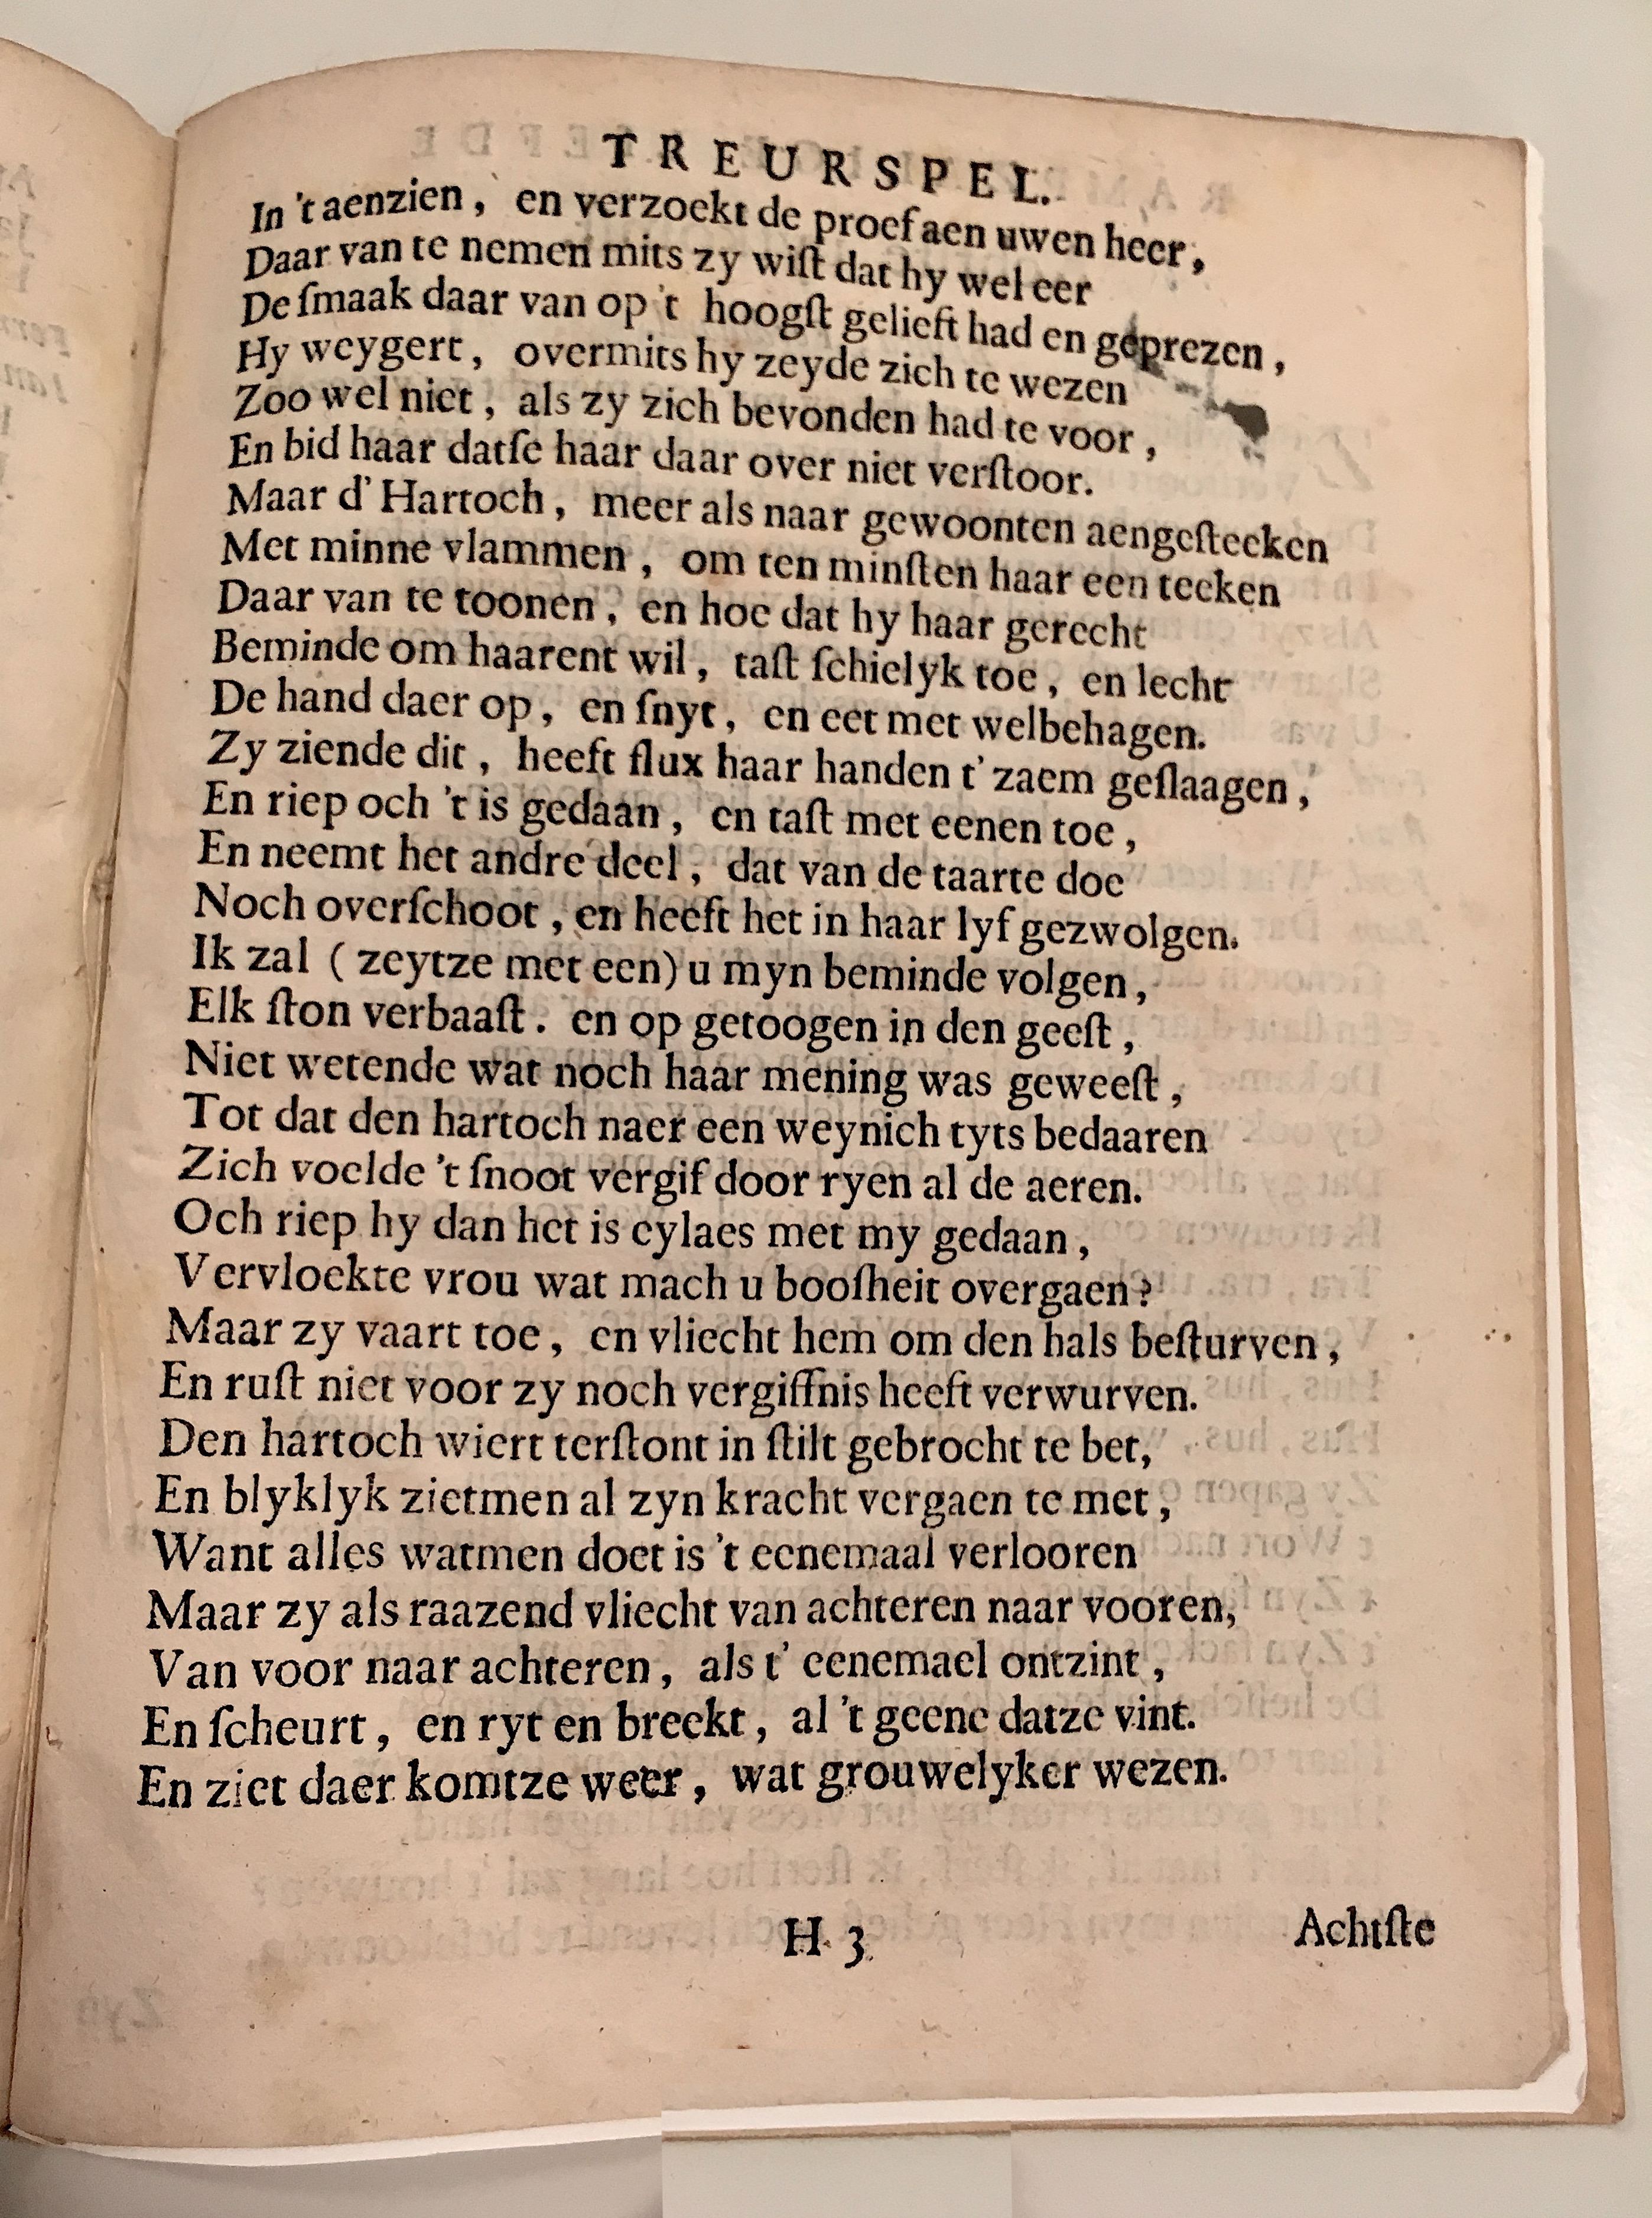 TREURSPEL.
In 't aenzien, en verzoekt de proef aen uwen heer,
Daar van te nemen mits zy wiſt dat hy wel eer
De ſmaak daar van op 't hoogſt gelieft had en geprezen,
Hy weygert, overmits hy zeyde zich te wezen
Zoo wel niet, als zy zich bevonden had te voor,
En bid haar datſe haar daar over niet verſtoor.
Maar d' Hartoch, meer als naar gewoonten aengeſteeken
Met minne vlammen, om ten minſten haar een teeken
Daar van te toonen, en hoe dat hy haar gerecht
Beminde om haarent wil, taſt ſchielyk toe, en lecht
De hand daer op, en ſnyt, en eet met welbehagen.
Zy ziende dit, heeft flux haar handen t' zaem geſlaagen,
En riep och 't is gedaan, en taſt met eenen toe,
En neemt het andre deel, dat van de taarte doe
Noch overſchoot, en heeft het in haar lyf gezwolgen.
Ik zal (zeytze met een) u myn beminde volgen,
Elk ſton verbaaſt. en op getoogen in den geeſt,
Niet wetende wat noch haar mening was geweeſt,
Tot dat den hartoch naer een weynich tyts bedaaren
Zich voelde 't ſnoot vergif door ryen al de aeren.
Och riep hy dan het is eylaes met my gedaan,
Vervloekte vrou wat mach u booſheit overgaen?
Maar zy vaart toe, en vliecht hem om den hals beſturven,
En ruſt niet voor zy noch vergiffnis heeft verwurven.
Den hartoch wiert terſtont in ſtilt gebrocht te bet,
En blyklyk zietmen al zyn kracht vergaen te met,
Want alles watmen doet is 't eenemaal verlooren
Maar zy als raazend vliecht van achteren naar vooren,
Van voor naar achteren, als t' eenemael ontzint,
En ſcheurt, en ryt en breekt, al 't geene datze vint.
En ziet daer komtze weer, wat grouwelyker wezen.
H 3
Achtſte